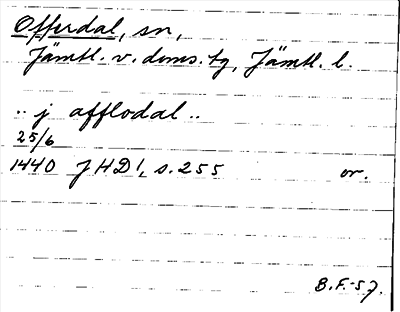 Offerdal, sn,
Jämtl. v. doms. tg, Jämtl. l.
.. j afflodal ..
25/6
1440 JHD 1, s. 255 or.
B.F.-57.